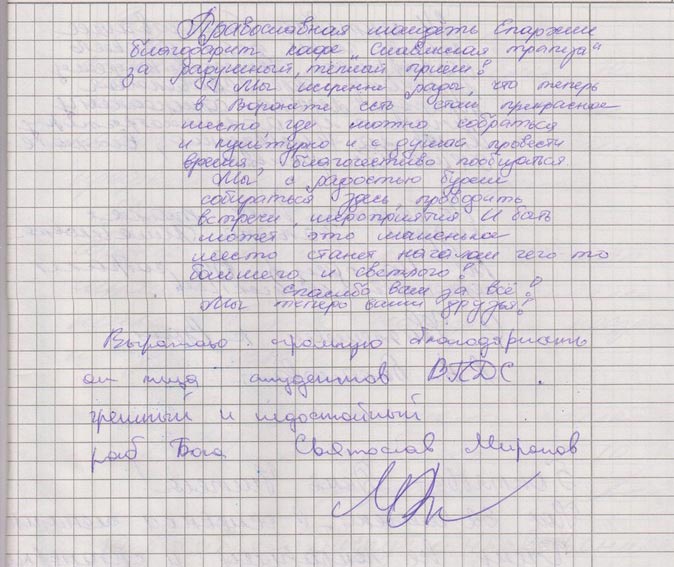 Православная молодёжь Епархии
благодарит кафе „Славянская трапеза"
за радушный, тёплый приём!
Мы искренне рады, что теперь
в Воронеже есть столь прекрасное
место, где можно собраться
и культурно и с душой провести
время, благочестиво пообщаться.
Мы с радостью будем
собираться здесь, проводить
встречи, мероприятия. И быть
может это маленькое
место станет началом чего то
большего и светлого!
Спасибо вам за всё!
Мы теперь ваши друзья!
Выражаю огромную благодарность
от лица студентов ВПДС.
грешный и недостойный
раб Бога Святослав Миронов